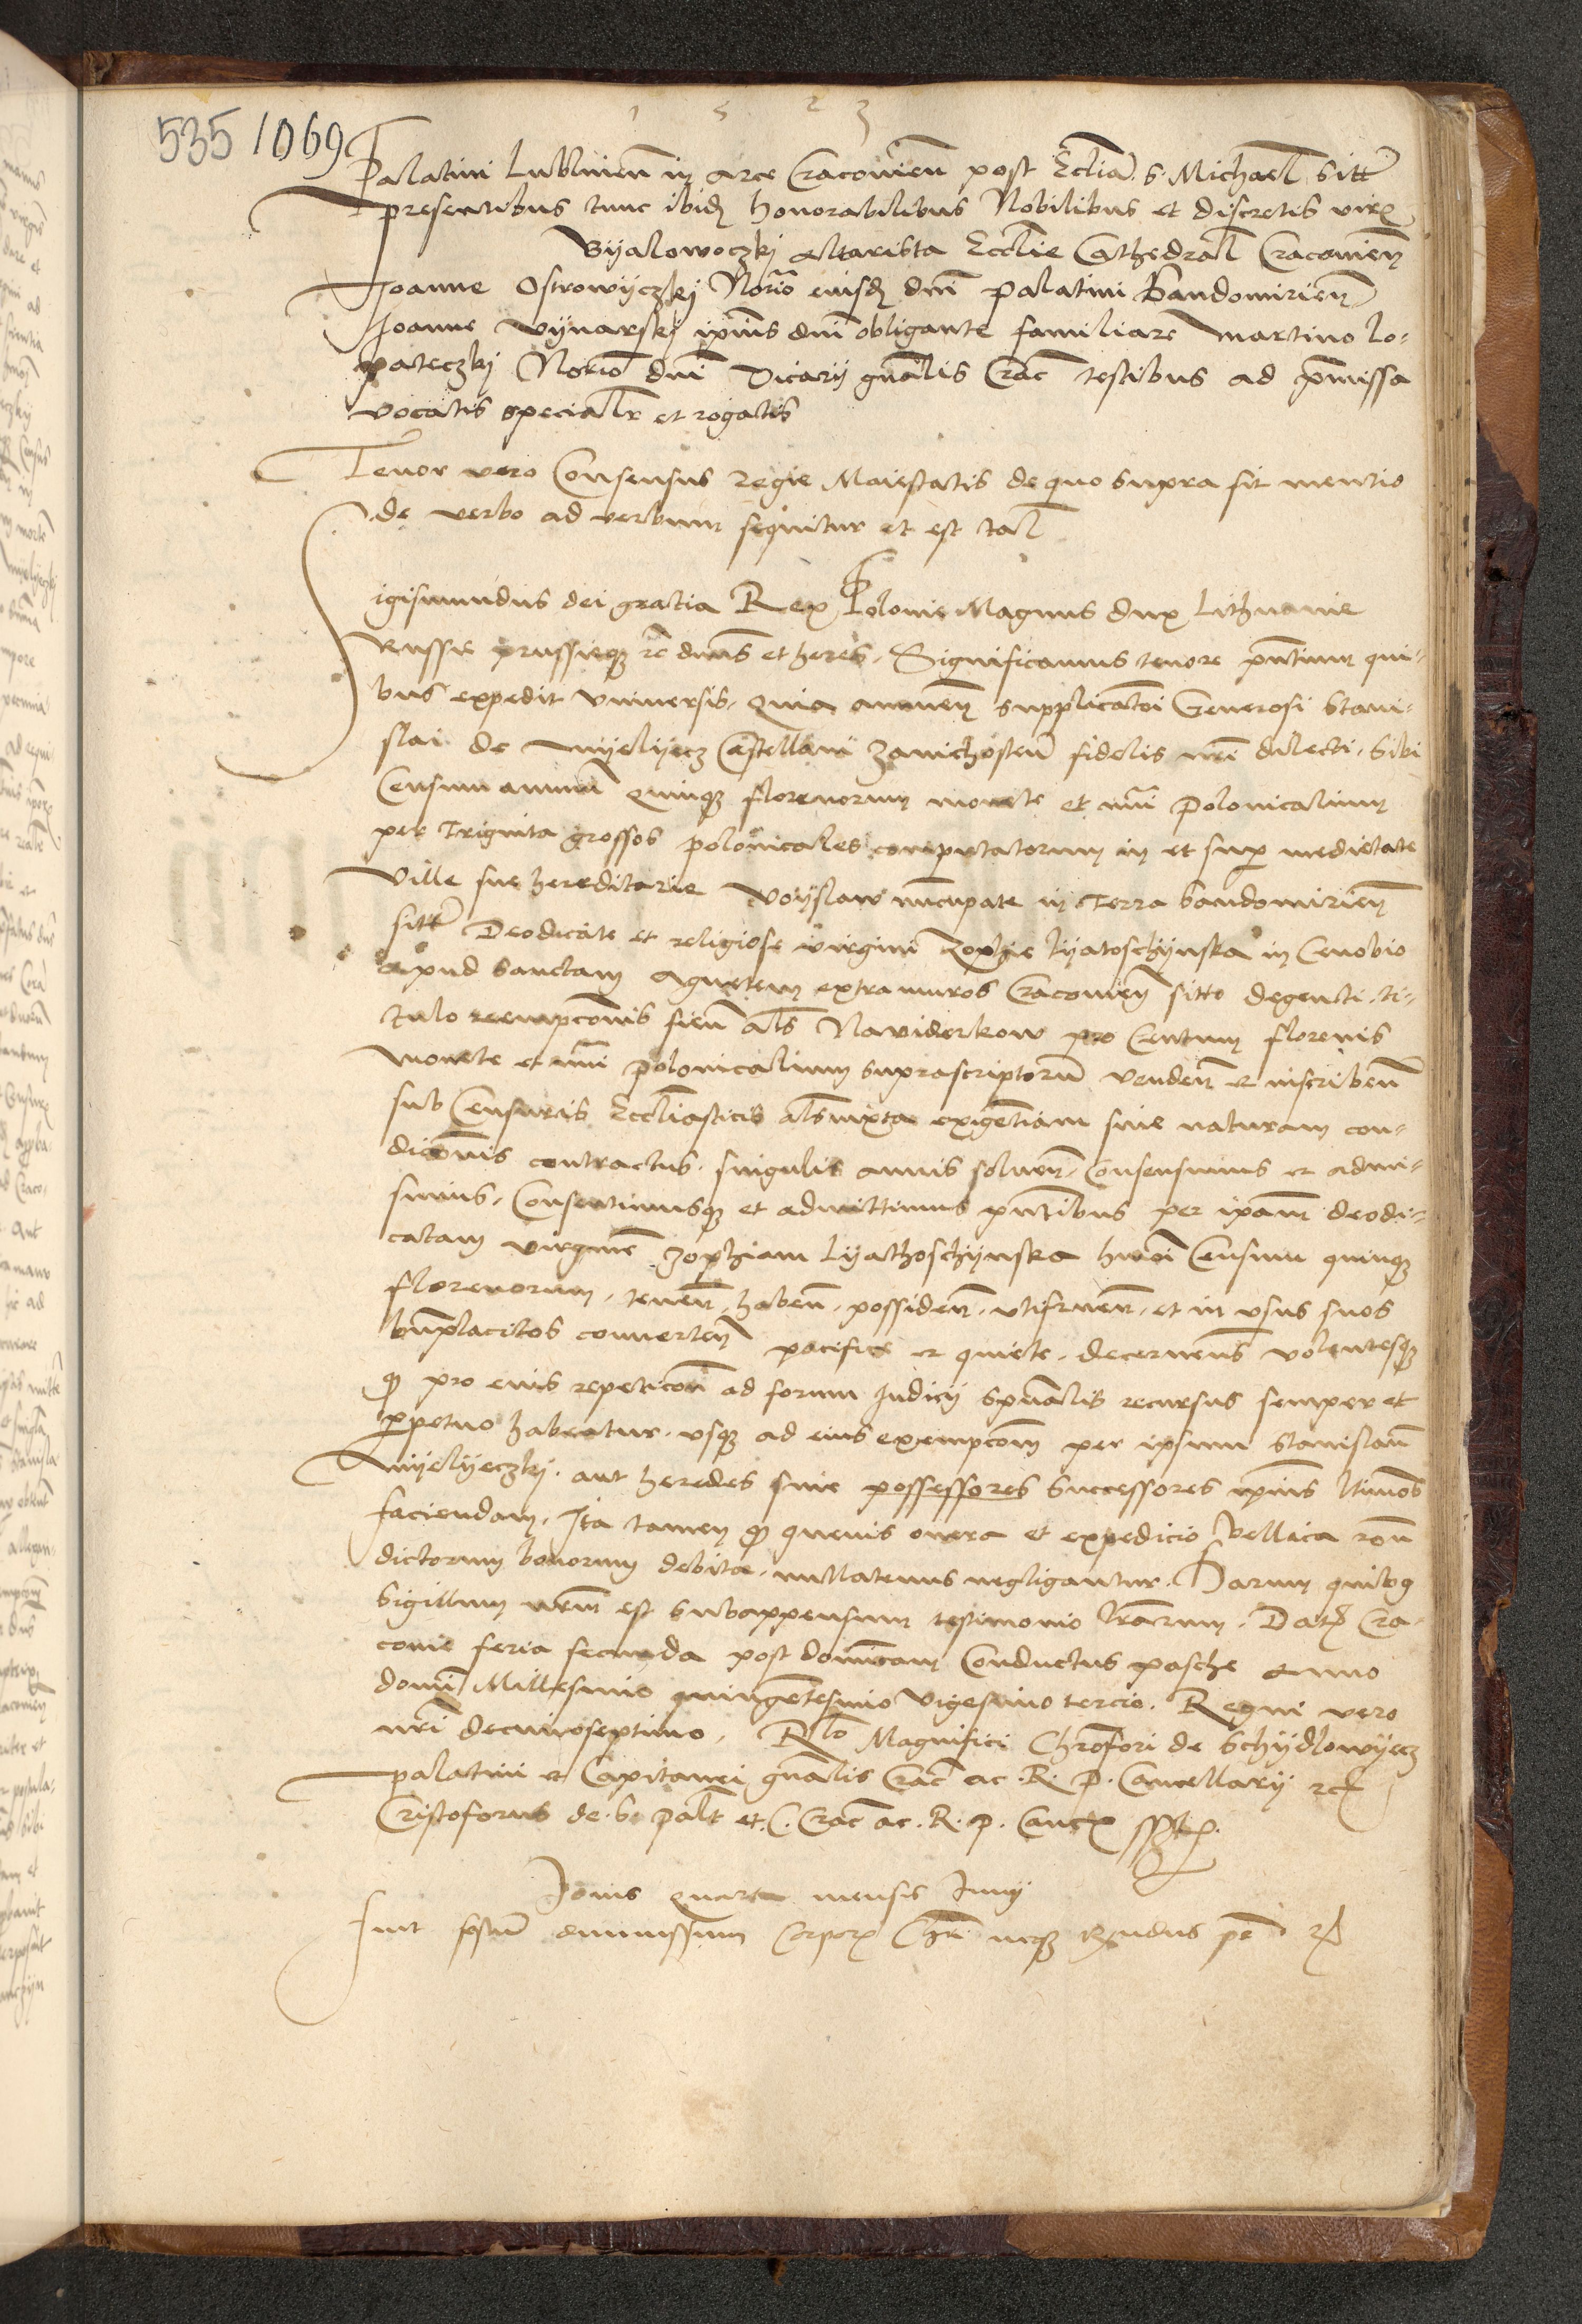 1 5 2 3
535 1069
Palatini Lublinen in arce Cracovien post Eccliam S. Michael sitt
presentibus tunc ibid honorabilibus Nobilibus et discretis viris
Byalowoczkj altarista Ecclie Cathedral Cracovien
Joanne Ostrowyczkj Norio eiusd dni palatini Sandomirien
Joanne Wynarskj ipius dni obligante familiare Martino Lo-
pateczkj Notrio dni Vicarij gnalis Crac testibus ad pmissa
vocatis specialr et rogatis
Tenor vero Consensus Regie Maiestatis de quo supra fit mentio
de verbo ad verbum sequitur et est tal
Sigismundus dei gratia Rex Polonie Magnus dux Lithuanie
Russie prussieq rc dnus et heres. Significamus tenore pntium qui-
bus expedit universis. Quia annuen supplicatoi Generosi Stani-
slai de Myelyecz Castellani Zawichosten fidelis nri dilecti. Sibi
Censum annuu quinq florenorum monete et nui Polonicalium
per Triginta grossos polonicales computatorum in et sup medietate
Ville sue hereditarie Woyslaw nuncupate in Terra Sandomirien
sitt Deodicate et religiose virgini Zophie Lyatoschynska in Cenobio
apud Sanctam Agnetem extra muros Cracovien sitto degenti. ti-
tulo reempconis sien als Naviderkow pro Centum florenis
monete et nui Polonicalium suprascriptoru venden et inscriben
sub Censuris Eccliasticis als iuxta exigentiam sive naturam con-
diconis contractus. singulis annis solven. Consensimus et admi-
simus. Consentimusq et admittimus pntibus per ipam deodi-
catam virgine Zophiam Lyathoschynska huoi Censum quinq
florenorum. tenen. haben. possiden. utifruen. et in usus suos
bnplacitos converten pacifice et quiete. decernens volentesq
q pro eius repeticon ad forum Judicij spualis recursus semper et
ppetuo habeatur. usq ad eius exempcom per ipsum Stanislau
Myelyeczkj. aut heredes sive possessores successores ipius ltimos
faciendam. Ita tamen q quevis onera et expedicio bellica ron
dictorum bonorum debita. nullatenus negligantur. Harum quibus
Sigillum nrum est subappensum testimonio lrarum. Dat Cra-
covie feria secunda post dominicam Conductus pasche Anno
domini Millesimo quingentesimo Vigesimo tercio. Regni vero
nri decimoseptimo. Rlo Magnifici Christofori de Schydlowyecz
palatini et Capitanei gnalis Crac ac. R. P. Cancellarij rc
Cristoforus de. S. Palt et. C. Crac ac. R. P. Canc sst.
Jovis Quarta mensis Junij
fuit festum Corporis Chri